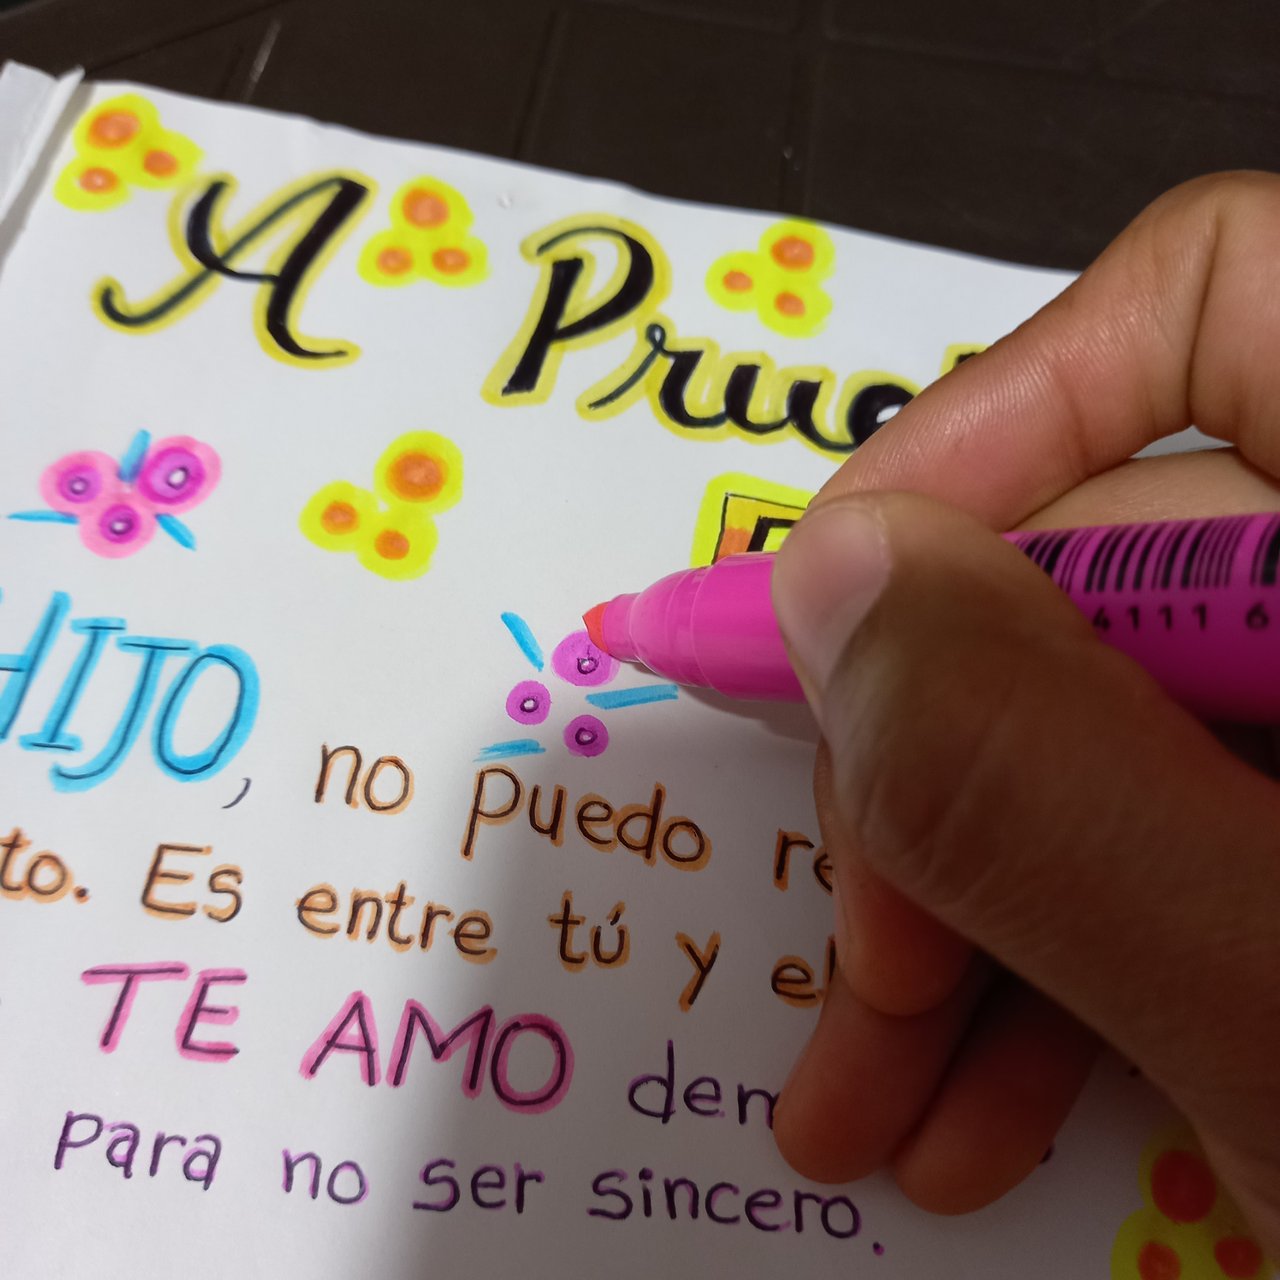 A
HIJO, no puedo
Es entre tú y el
TE AMO
para no ser sincero.
4111 6